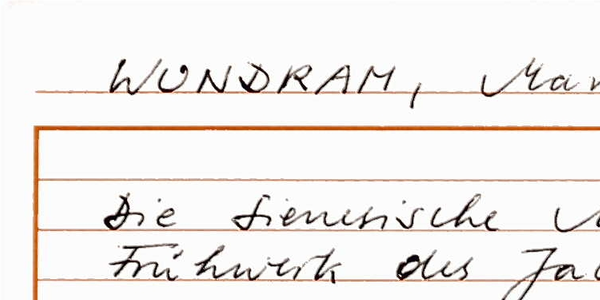 WUNDRAM, Man
Die sienesische
Frühwerk des Jac